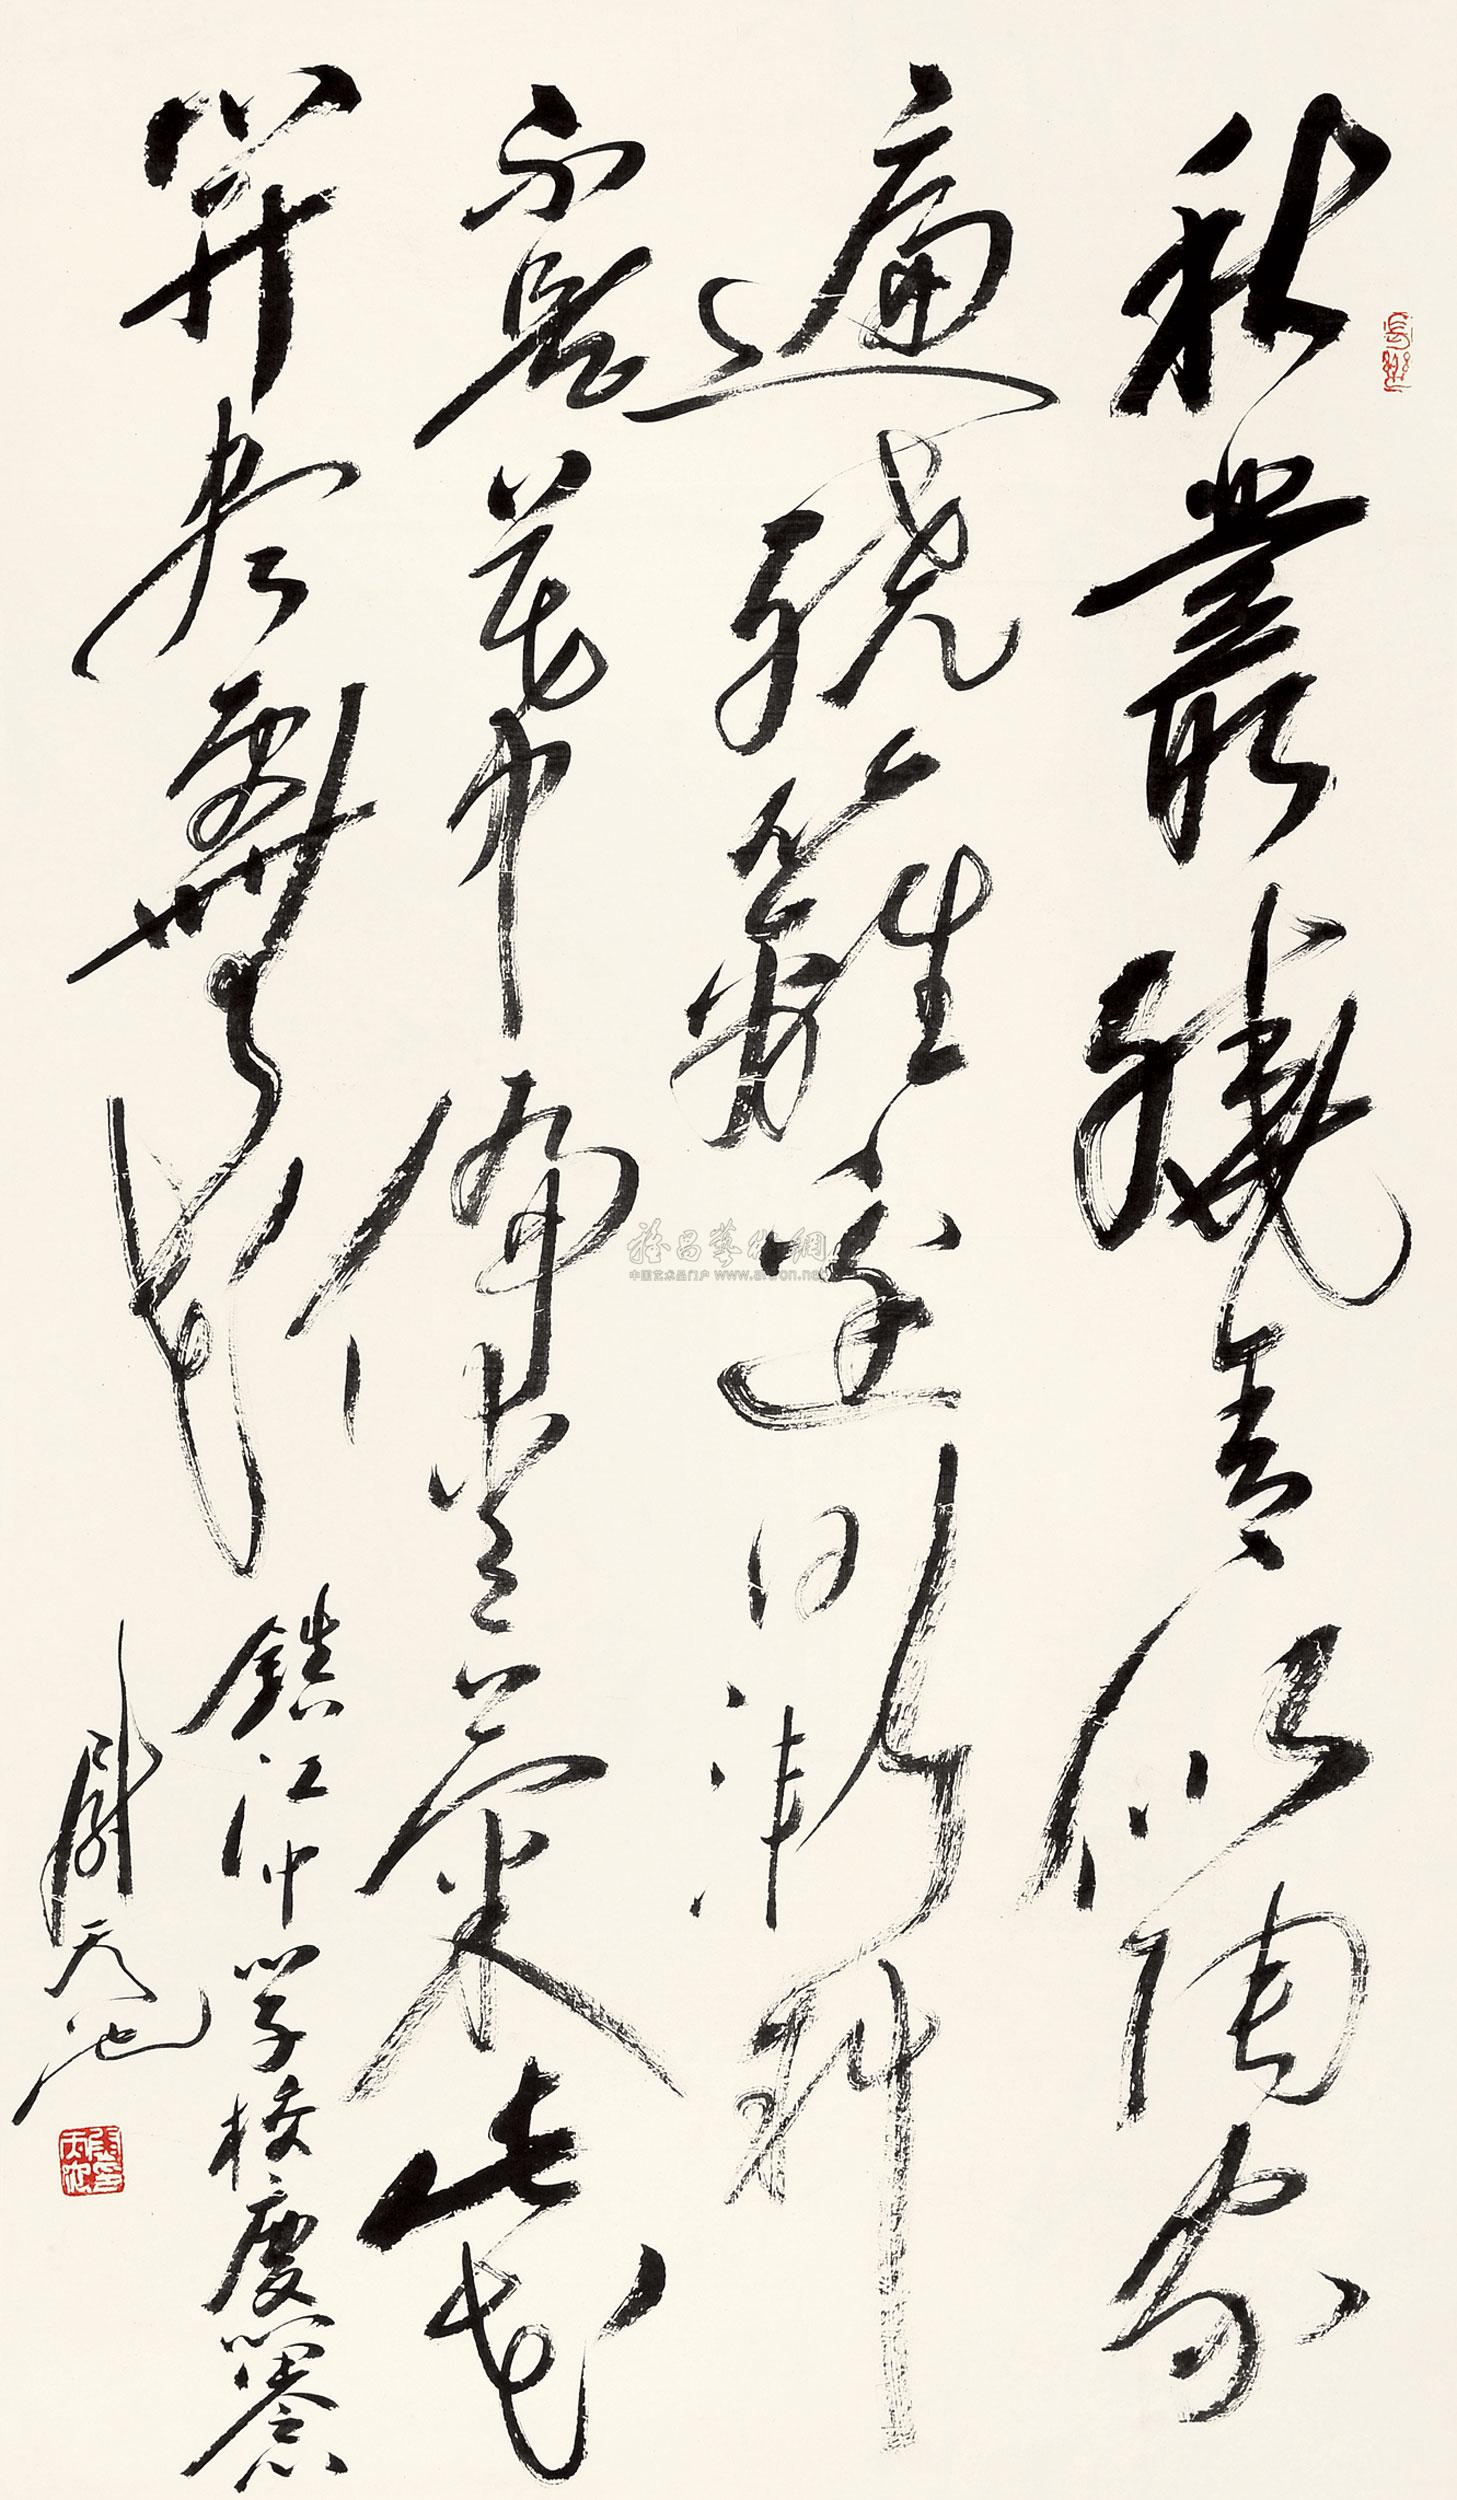 秋叢繞舍似陶家
遍繞籬邊日漸斜
不是花中偏愛菊此花
開盡更無花
鎮江中學校慶留念
尉天池
雅昌藝術網
中国艺术品门户 www.artron.net